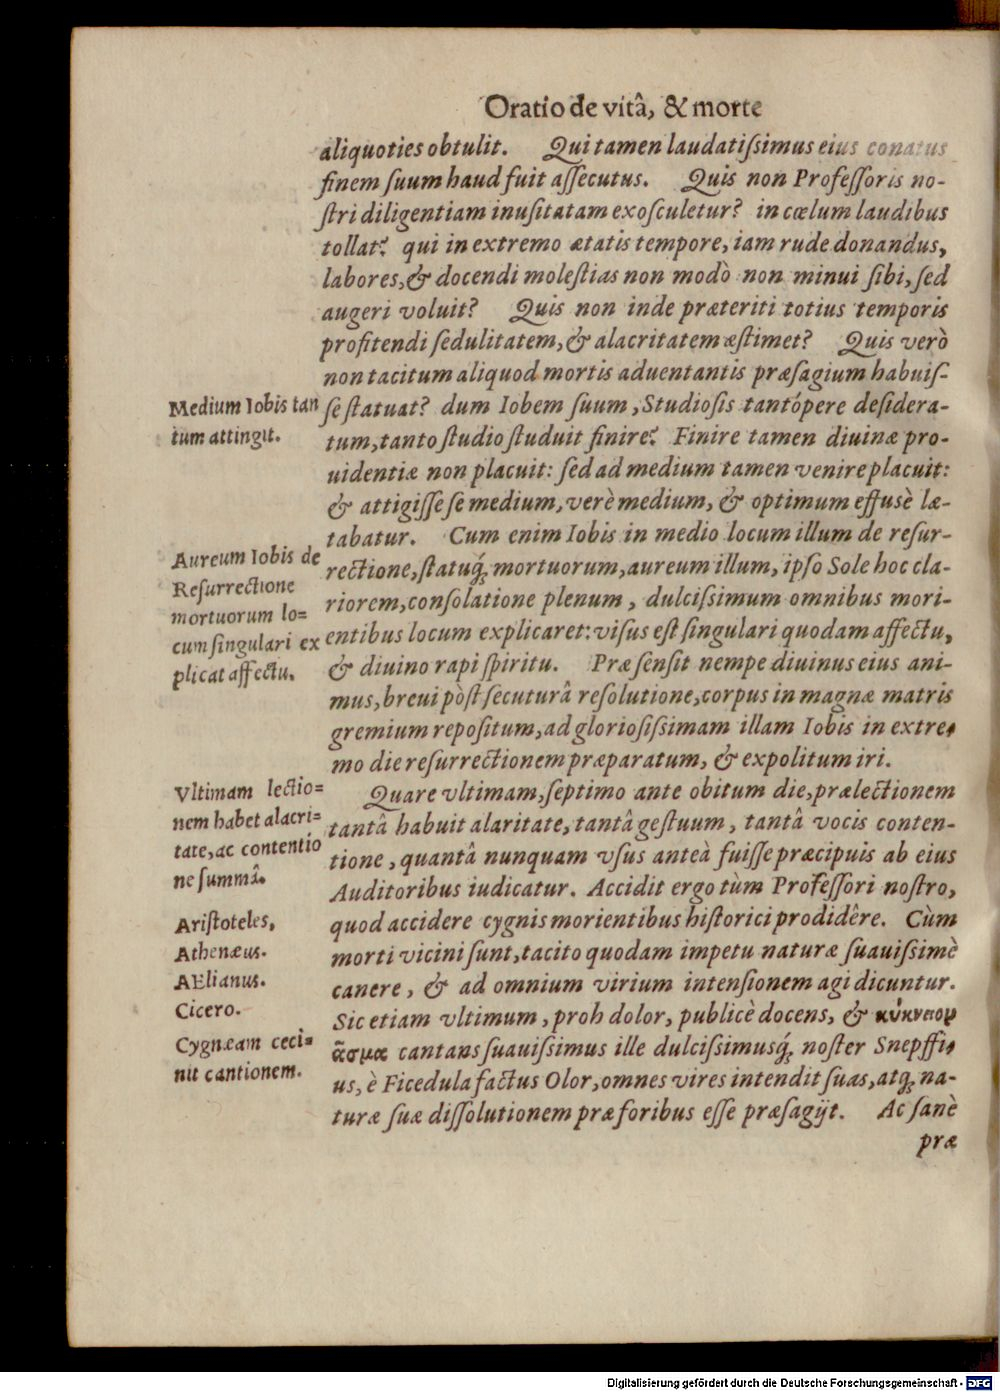 Oratio de vitâ, & morte
aliquoties obtulit. Qui tamen laudatiſsimus eius conatus
finem ſuum haud fuit aſſecutus. Quis non Profeſſoris no-
ſtri diligentiam inuſitatam exoſculetur? in cœlum laudibus
tollat? qui in extremo ætatis tempore, iam rude donandus,
labores, & docendi moleſtias non modò non minui ſibi, ſed
augeri voluit? Quis non inde præteriti totius temporis
profitendi ſedulitatem, & alacritatem æſtimet? Quis verò
non tacitum aliquod mortis aduentantis præſagium habuiſ-
Medium Iobis tan
tum attingit.
ſe ſtatuat? dum Iobem ſuum, Studioſis tantópere deſidera-
tum, tanto ſtudio ſtuduit finire? Finire tamen diuinæ pro-
uidentiæ non placuit: ſed ad medium tamen venire placuit:
& attigiſſe ſe medium, verè medium, & optimum effusè læ-
tabatur. Cum enim Iobis in medio locum illum de reſur-
Aureum Iobis de
Reſurrectione
mortuorum lo=
cum ſingulari ex
plicat affectu.
rectione, ſtatuq́; mortuorum, aureum illum, ipſo Sole hoc cla-
riorem, conſolatione plenum, dulciſsimum omnibus mori-
entibus locum explicaret: viſus eſt ſingulari quodam affectu,
& diuino rapi ſpiritu. Præſenſit nempe diuinus eius ani-
mus, breui pòſt ſecuturâ reſolutione, corpus in magnæ matris
gremium repoſitum, ad glorioſiſsimam illam Iobis in extre-
mo die reſurrectionem præparatum, & expolitum iri.
Vltimam lectio=
nem habet alacri=
tate, ac contentio
ne ſummâ.
Quare vltimam, ſeptimo ante obitum die, prælectionem
tantâ habuit alaritate, tantâ geſtuum, tantâ vocis conten-
tione, quantâ nunquam vſus anteà fuiſſe præcipuis ab eius
Auditoribus iudicatur. Accidit ergo tùm Profeſſori noſtro,
Ariſtoteles.
Athenæus.
AElianus.
Cicero.
quod accidere cygnis morientibus hiſtorici prodidêre. Cùm
morti vicini ſunt, tacito quodam impetu naturæ ſuauiſsimè
canere, & ad omnium virium intenſionem agi dicuntur.
Sic etiam vltimum, proh dolor, publicè docens, & κύκνειον
Cygnæam ceci=
nit cantionem.
ᾆσμα cantans ſuauiſsimus ille dulciſsimusq́; noſter Snepffi-
us, è Ficedula factus Olor, omnes vires intendit ſuas, atq; na-
turæ ſuæ diſſolutionem præ foribus eſſe præſagijt. Ac ſanè
præ
Digitalisierung gefördert durch die Deutsche Forschungsgemeinschaft - DFG